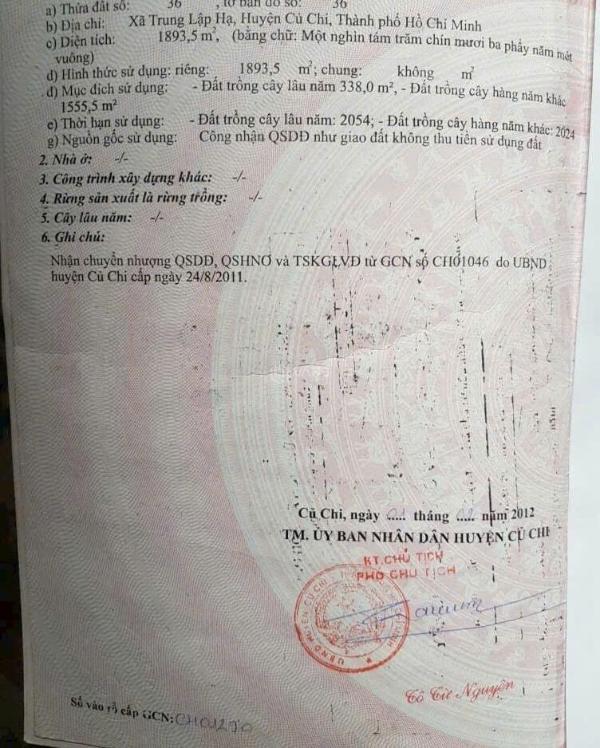 a) Thửa đất số: 36 , tờ bản đồ số: 36
b) Địa chỉ: Xã Trung Lập Hạ, Huyện Củ Chi, Thành phố Hồ Chí Minh
c) Diện tích: 1893,5 m², (bằng chữ: Một nghìn tám trăm chín mươi ba phẩy năm mét
vuông)
d) Hình thức sử dụng: riêng: 1893,5 m²; chung: không m²
đ) Mục đích sử dụng: - Đất trồng cây lâu năm 338,0 m², - Đất trồng cây hàng năm khác
1555,5 m²
e) Thời hạn sử dụng: - Đất trồng cây lâu năm: 2054; - Đất trồng cây hàng năm khác: 2024
g) Nguồn gốc sử dụng: Công nhận QSDĐ như giao đất không thu tiền sử dụng đất
2. Nhà ở: -/-
3. Công trình xây dựng khác: -/-
4. Rừng sản xuất là rừng trồng: -/-
5. Cây lâu năm: -/-
6. Ghi chú:
Nhận chuyển nhượng QSDĐ, QSHNƠ và TSKGLVĐ từ GCN số CH01046 do UBND
huyện Củ Chi cấp ngày 24/8/2011.
Củ Chi, ngày ..... tháng ..... năm 2012
TM. ỦY BAN NHÂN DÂN HUYỆN CỦ CHI
KT.CHỦ TỊCH
PHÓ CHỦ TỊCH
UBND HUYỆN CỦ CHI
Số vào sổ cấp GCN: CH01290